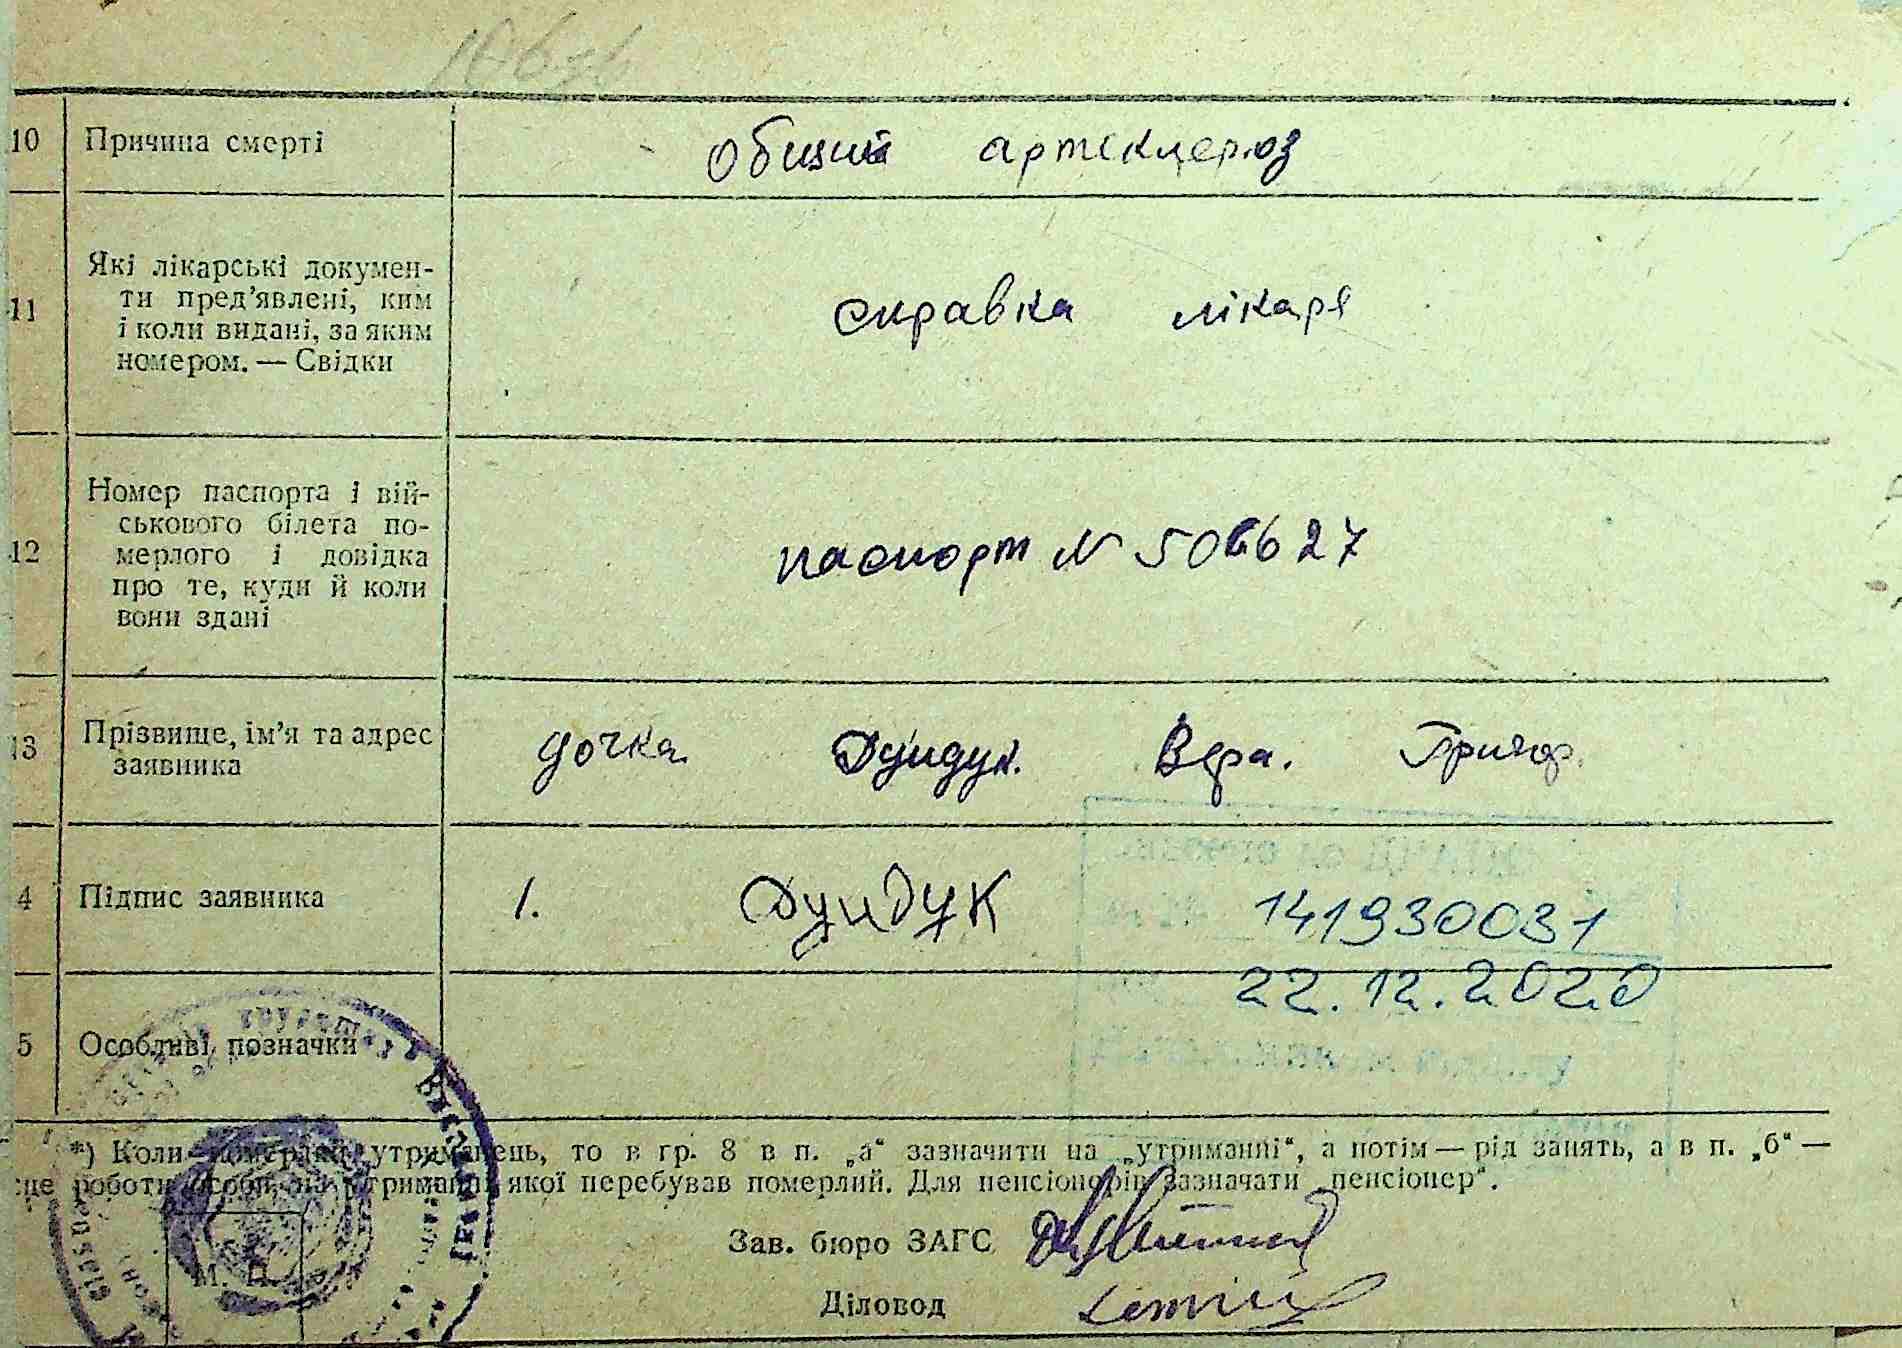 10 Причина смерті Общий артекцероз
11 Які лікарські докумен-
ти пред’явлені, ким
і коли видані, за яким
номером. — Свідки
справка лікаря
12 Номер паспорта і вій-
ськового білета по-
мерлого і довідка
про те, куди й коли
вони здані
паспорт N 506627
13 Прізвище, ім’я та адрес
заявника
дочка Дундук. Вера. Григор.
4 Підпис заявника 1. Дундук
141930031
22.12.2020
5 Особливі позначки
*) Коли померлий утриманець, то в гр. 8 в п. „а“ зазначити на „утриманні“, а потім — рід занять, а в п. „б“ —
це роботи особи, на утриманні якої перебував померлий. Для пенсіонерів зазначати „пенсіонер“.
Зав. бюро ЗАГС
М. П.
Діловод